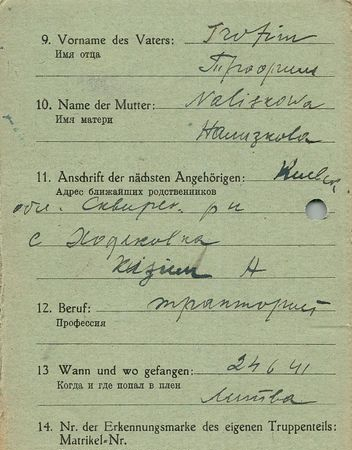 9. Vorname des Vaters: Trofim
Имя отца Трофим
10. Name der Mutter: Naliskowa
Имя матери Нализкова
11. Anschrift der nächsten Angehörigen: Киевск.
Адрес ближайших родственников
обл. Сквирск. р-н
с Ходаковка
А
12. Beruf: тракторист
Профессия
13 Wann und wo gefangen: 24 6 41
Когда и где попал в плен Литва
14. Nr. der Erkennungsmarke des eigenen Truppenteils:
Matrikel-Nr.